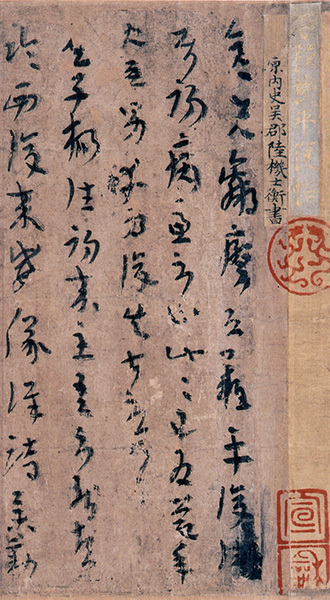 平復帖
原內史吳郡陸機士衡書
宣
和
彦先羸瘵恐難平復往
屬初病慮不止此〻已為慶承
使唯男幸為復失前憂耳吳
子楊往初來主吾不能盡
臨西復來威儀詳跱舉動